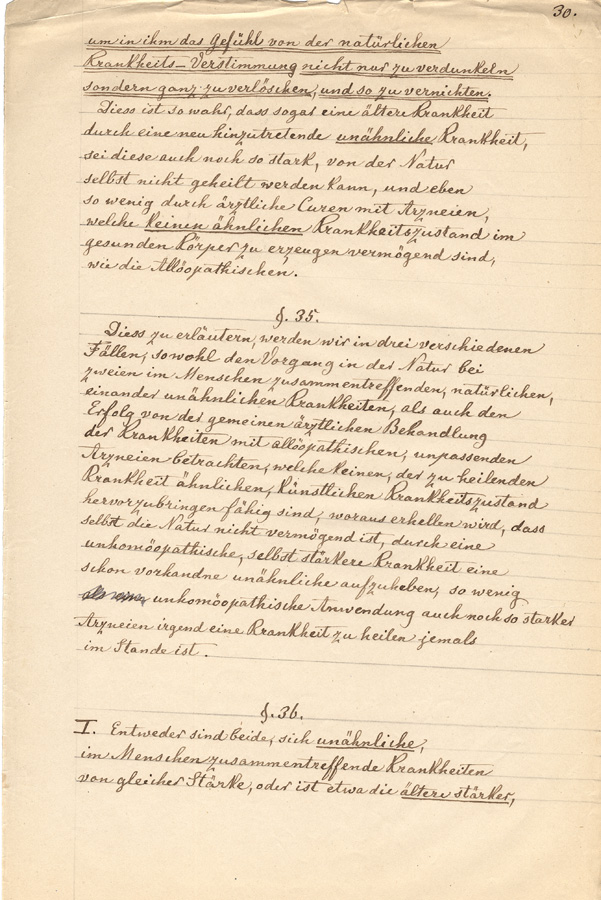 30.
um in ihm das Gefühl von der natürlichen
Krankheits-Verstimmung nicht nur zu verdunkeln
sondern ganz zu verlöschen, und so zu vernichten.
Diess ist so wahr, dass sogar eine ältere Krankheit
durch eine neu hinzutretende unähnliche Krankheit,
sei diese auch noch so stark, von der Natur
selbst nicht geheilt werden kann, und eben
so wenig durch ärztliche Curen mit Arzneien,
welche keinen ähnlichen Krankheitszustand im
gesunden Körper zu erzeugen vermögend sind,
wie die Allöopathischen.
§. 35.
Diess zu erläutern, werden wir in drei verschiedenen
Fällen, sowohl den Vorgang in der Natur bei
zweien im Menschen zusammentreffenden, natürlichen,
einander unähnlichen Krankheiten, als auch den
Erfolg von der gemeinen ärztlichen Behandlung
der Krankheiten mit allöopathischen, unpassenden
Arzneien betrachten, welche keinen, der zu heilenden
Krankheit ähnlichen, künstlichen Krankheitszustand
hervorzubringen fähig sind, woraus erhellen wird, dass
selbst die Natur nicht vermögend ist, durch eine
unhomöopathische, selbst stärkere Krankheit eine
schon vorhandne unähnliche aufzuheben, so wenig
unhomöopathische Anwendung auch noch so starker
Arzneien irgend eine Krankheit zu heilen jemals
im Stande ist.
§. 36.
I. Entweder sind beide, sich unähnliche,
im Menschen zusammentreffende Krankheiten
von gleicher Stärke, oder ist etwa die ältere stärker,